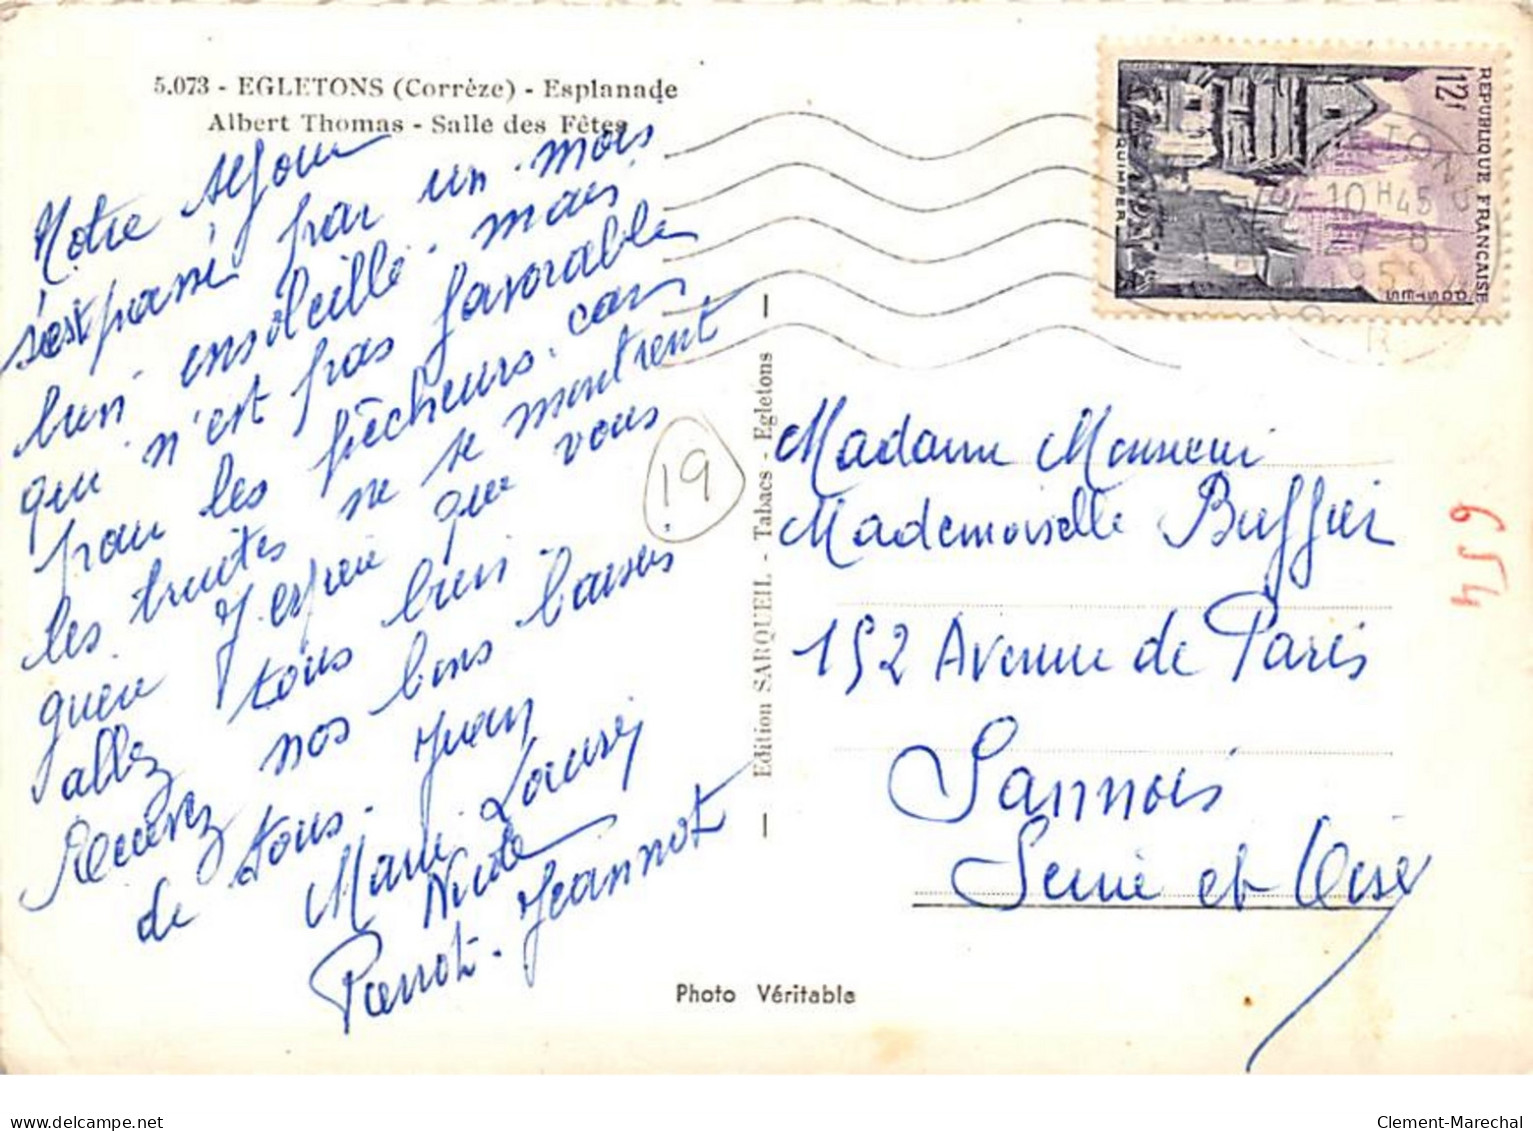 5.073 - EGLETONS (Corrèze) - Esplanade
Albert Thomas - Salle des Fêtes
Notre séjour
s'est passé par un mois
bien ensoleillé. mais
qui n'est pas favorable
pour les pêcheurs. car
les truites ne se montrent
guère J'espère que vous
allez tous bien.
Recevez nos bons baisers
de tous. Jean
Marie Louise
Nicole
Pierrot. Jeannot
19
Edition SARQUEIL - Tabacs - Egletons
Photo Véritable
REPUBLIQUE FRANÇAISE
POSTES
12f
QUIMPER
10 H45
8
1955
Madame
Mademoiselle Buffier
152 Avenue de Paris
Sannois
Seine et Oise
654
Clement-Marechal